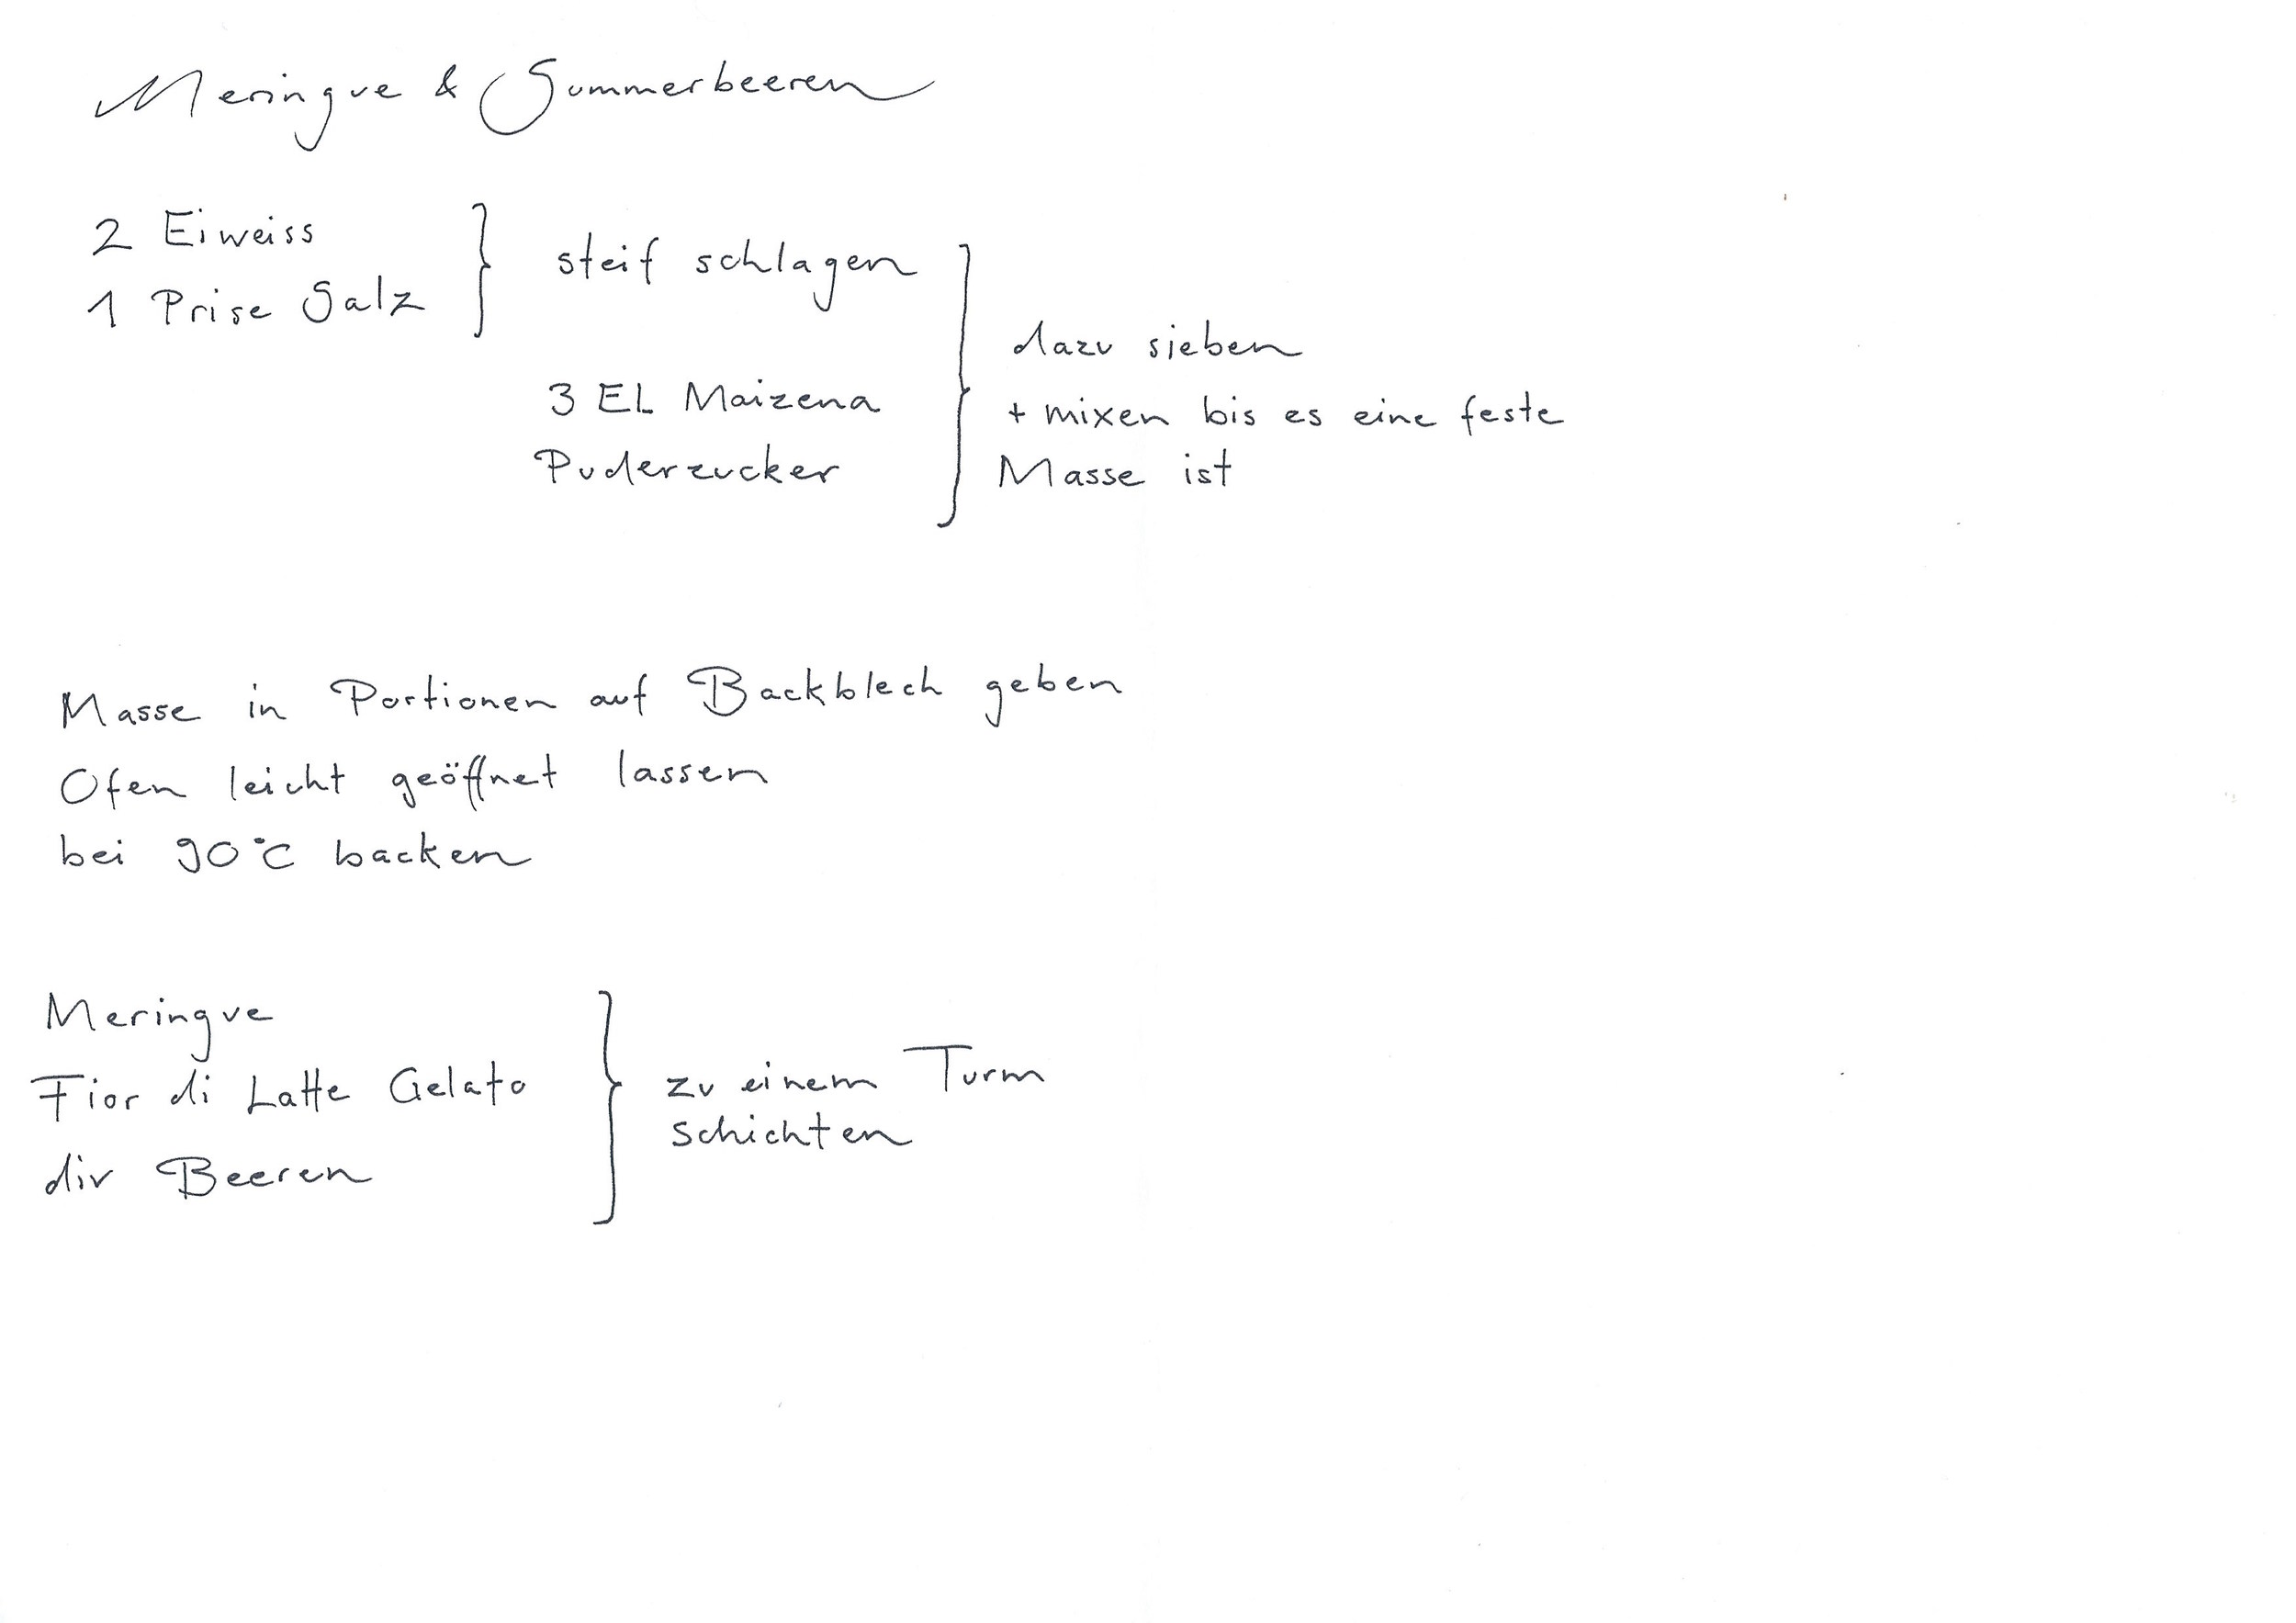 Meringue & Sommerbeeren
2 Eiweiss
1 Prise Salz
steif schlagen
3 EL Maizena
Puderzucker
dazu sieben
+ mixen bis es eine feste
Masse ist
Masse in Portionen auf Backblech geben
Ofen leicht geöffnet lassen
bei 90°C backen
Meringue
Fior di Latte Gelato
div Beeren
zu einem Turm
schichten